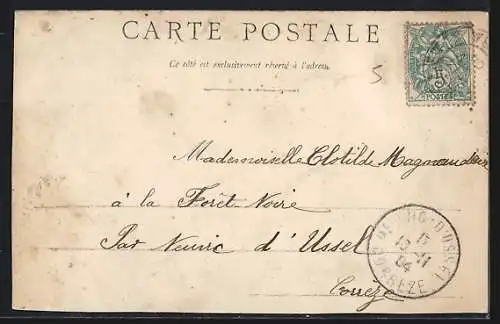 CARTE POSTALE
Ce côté est exclusivement réservé à l'adresse
5
5
POSTES
Mademoiselle Clotilde
à la Forêt Noire
Par Neuvic d'Ussel
Corrèze
CORREZE
04